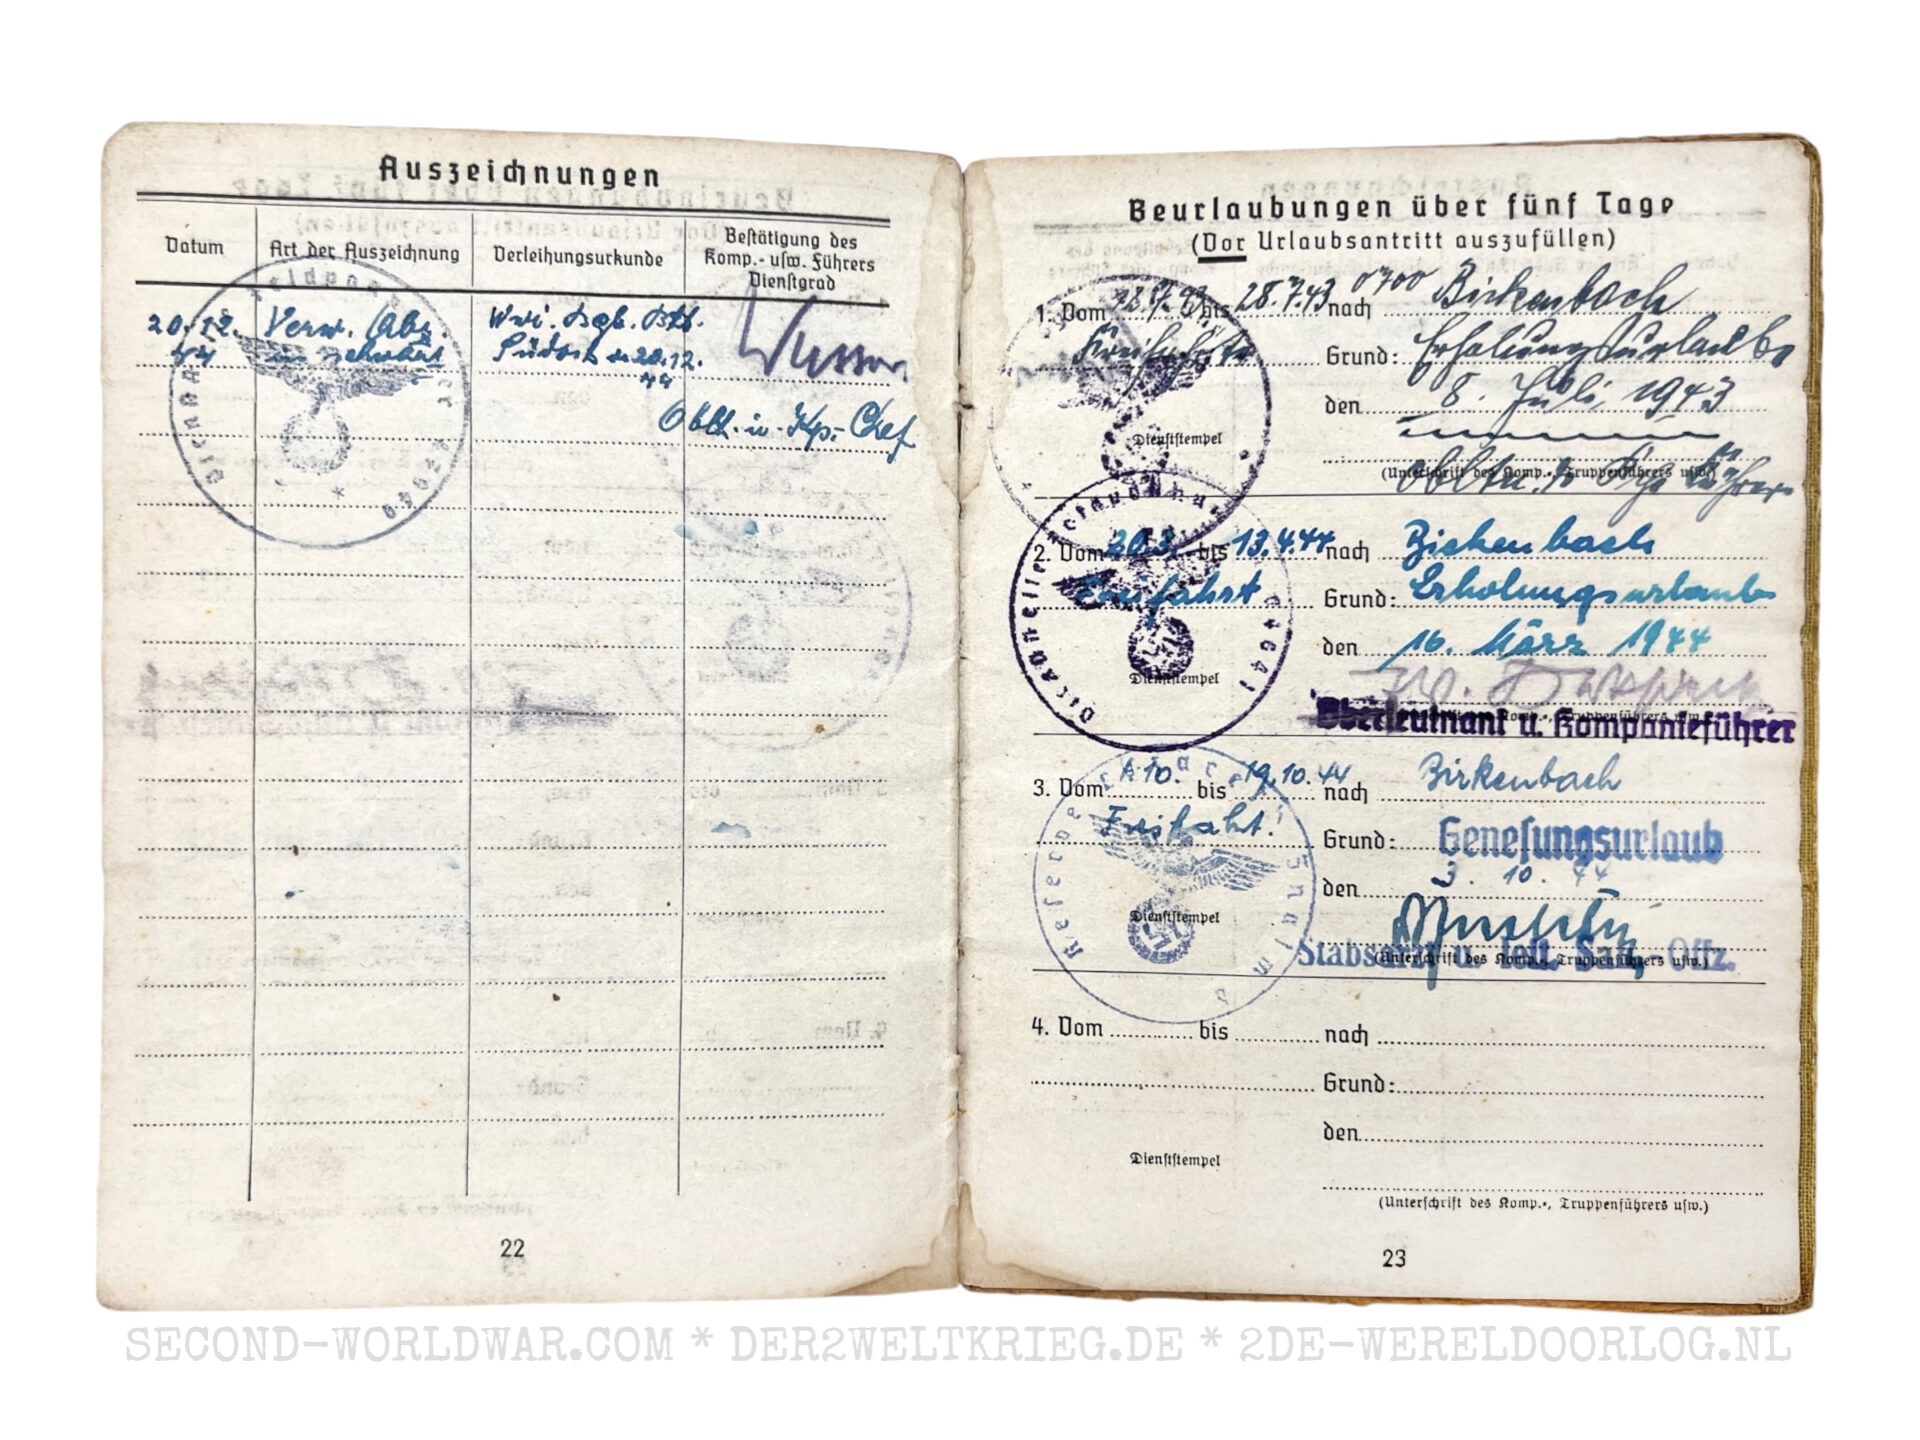 Auszeichnungen
Datum
Art der Auszeichnung
Verleihungsurkunde
Bestätigung des
Komp.- usw. Führers
Dienstgrad
20.12.
44
Verw. Abz.
in
20.12.
44
Oblt. u. Kp.-Chef
22
Beurlaubungen über fünf Tage
(Vor Urlaubsantritt auszufüllen)
1. Vom bis 28.7.43 0700 nach Birkenbach
Grund: Erholungsurlaub
den 8. Juli 1943
Dienststempel
(Unterschrift des Komp.-, Truppenführers usw.)
2. Vom 20.3. bis 13.4.44 nach Birkenbach
Freifahrt
Grund: Erholungsurlaub
den 16. März 1944
Dienststempel
Oberleutnant u. Kompanieführer
3. Vom 1.10. bis 19.10.44 nach Birkenbach
Freifahrt!
Grund: Genesungsurlaub
den 3. 10. 44
Dienststempel
Stabsarzt u. leit. San. Offz.
(Unterschrift des Komp.-, Truppenführers usw.)
4. Vom bis nach
Grund:
den
Dienststempel
(Unterschrift des Komp.-, Truppenführers usw.)
23
SECOND-WORLDWAR.COM * DER2WELTKRIEG.DE * 2DE-WERELDOORLOG.NL